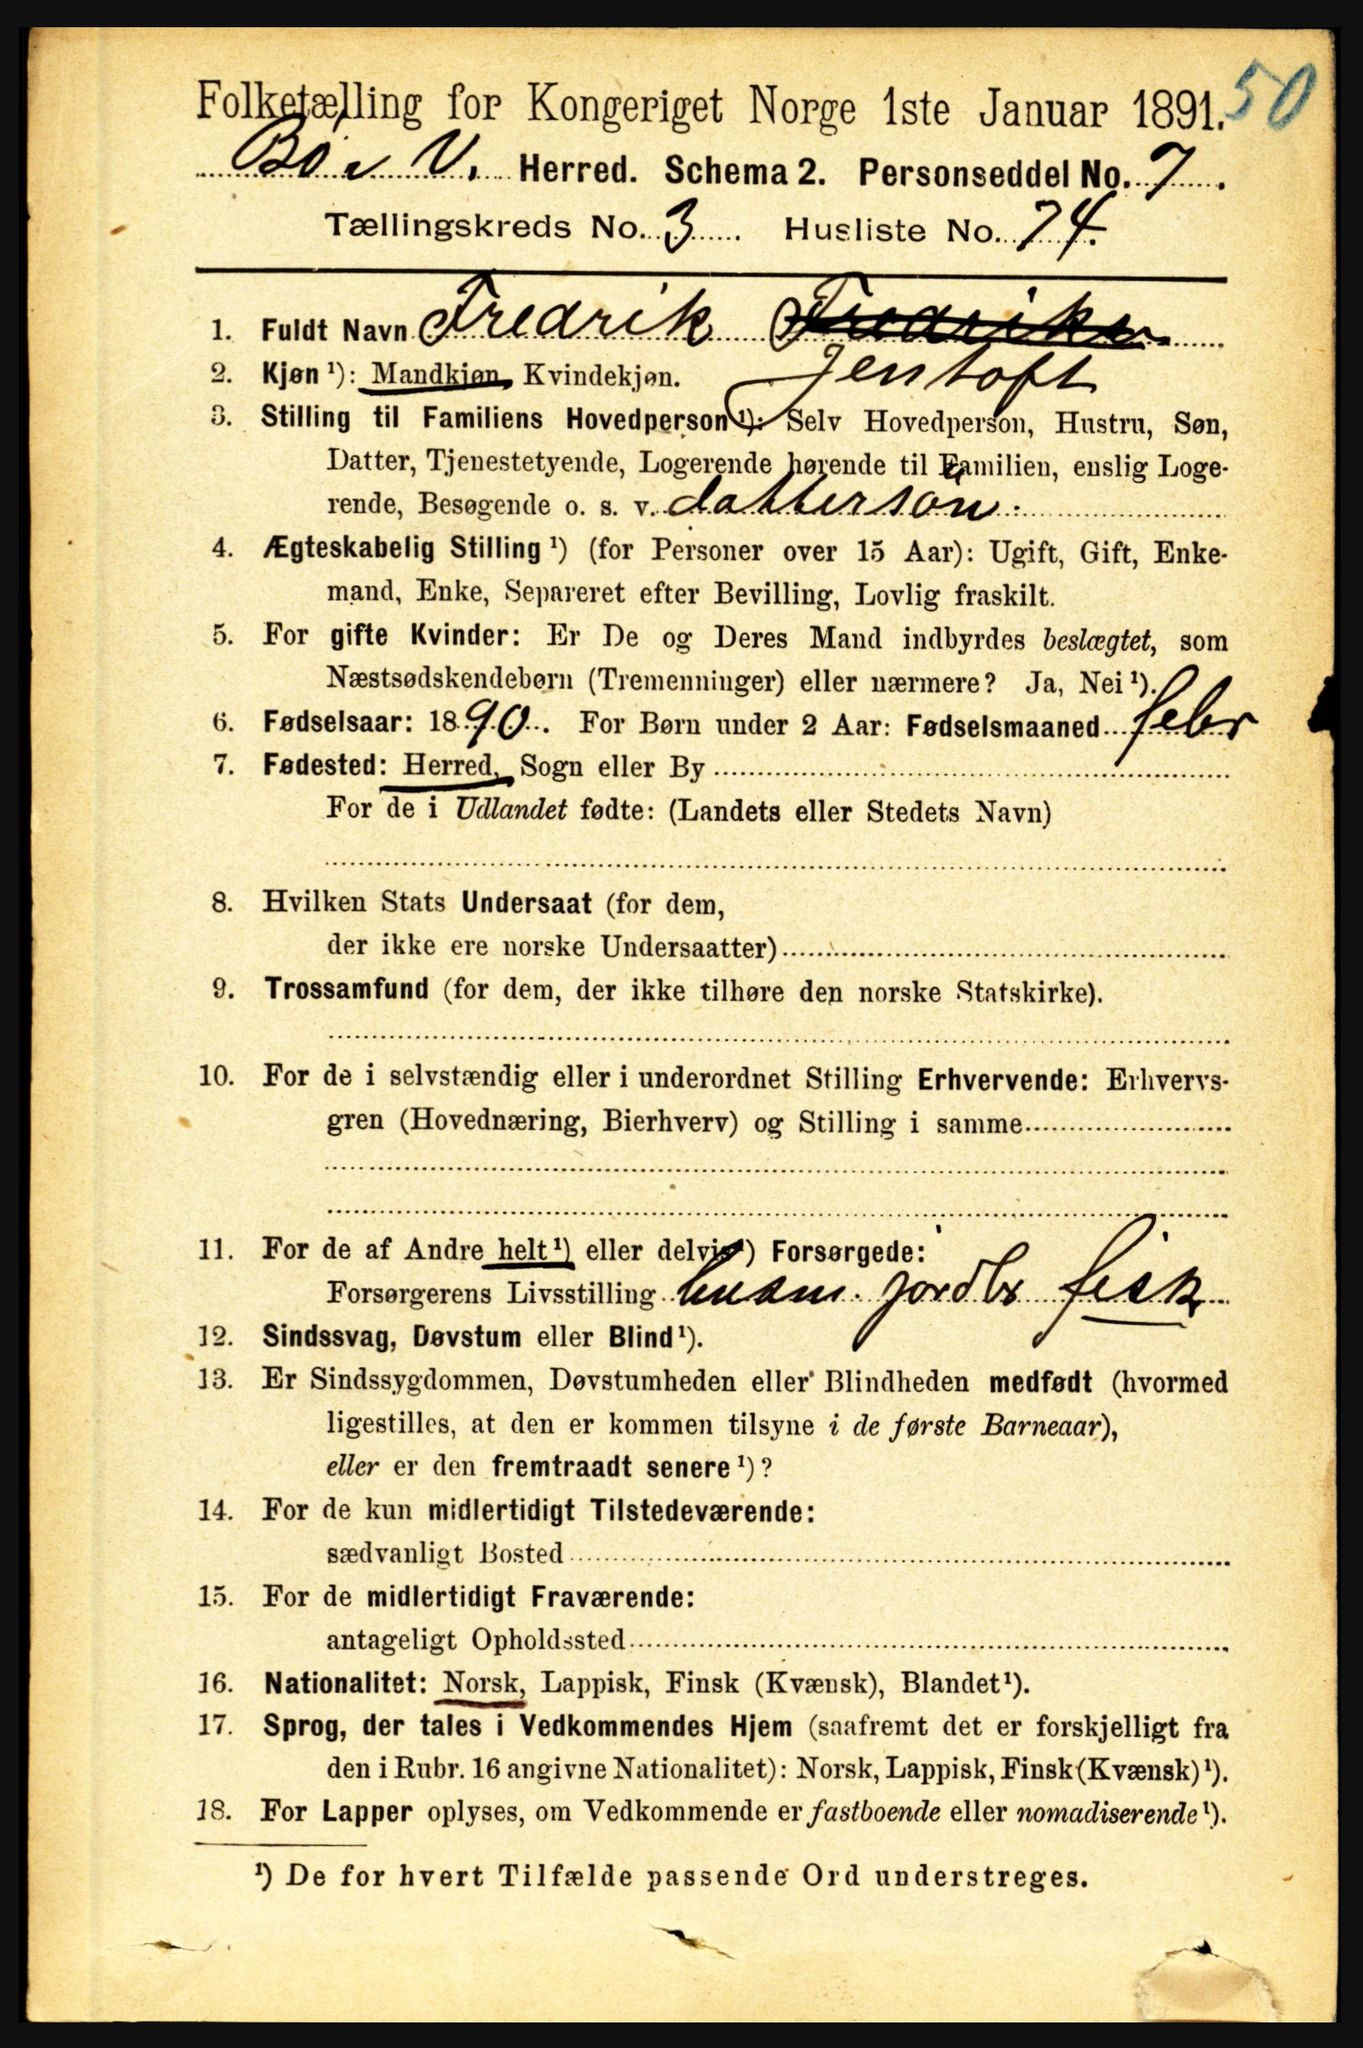 50
Folketælling for Kongeriget Norge 1ste Januar 1891.
Bø i V. Herred. Schema 2. Personseddel No. 7.
Tællingskreds No. 3 Husliste No. 74.
1. Fuldt Navn Fredrik Fredriks
2. Kjøn ¹): Mandkjøn, Kvindekjøn. Jentoft
3. Stilling til Familiens Hovedperson ¹): Selv Hovedperson, Hustru, Søn,
Datter, Tjenestetyende, Logerende hørende til Familien, enslig Loge-
rende, Besøgende o. s. v. dattersøn.
4. Ægteskabelig Stilling ¹) (for Personer over 15 Aar): Ugift, Gift, Enke-
mand, Enke, Separeret efter Bevilling, Lovlig fraskilt.
5. For gifte Kvinder: Er De og Deres Mand indbyrdes beslægtet, som
Næstsødskendebørn (Tremenninger) eller nærmere? Ja, Nei ¹).
6. Fødselsaar: 1890. For Børn under 2 Aar: Fødselsmaaned febr
7. Fødested: Herred, Sogn eller By
For de i Udlandet fødte: (Landets eller Stedets Navn)
8. Hvilken Stats Undersaat (for dem,
der ikke ere norske Undersaatter)
9. Trossamfund (for dem, der ikke tilhøre den norske Statskirke).
10. For de i selvstændig eller i underordnet Stilling Erhvervende: Erhvervs-
gren (Hovednæring, Bierhverv) og Stilling i samme
11. For de af Andre helt ¹) eller delvis ¹) Forsørgede:
Forsørgerens Livsstilling husm. jordbr fisk
12. Sindssvag, Døvstum eller Blind ¹).
13. Er Sindssygdommen, Døvstumheden eller Blindheden medfødt (hvormed
ligestilles, at den er kommen tilsyne i de første Barneaar),
eller er den fremtraadt senere ¹)?
14. For de kun midlertidigt Tilstedeværende:
sædvanligt Bosted
15. For de midlertidigt Fraværende:
antageligt Opholdssted
16. Nationalitet: Norsk, Lappisk, Finsk (Kvænsk), Blandet ¹).
17. Sprog, der tales i Vedkommendes Hjem (saafremt det er forskjelligt fra
den i Rubr. 16 angivne Nationalitet): Norsk, Lappisk, Finsk (Kvænsk) ¹).
18. For Lapper oplyses, om Vedkommende er fastboende eller nomadiserende ¹).
¹) De for hvert Tilfælde passende Ord understreges.